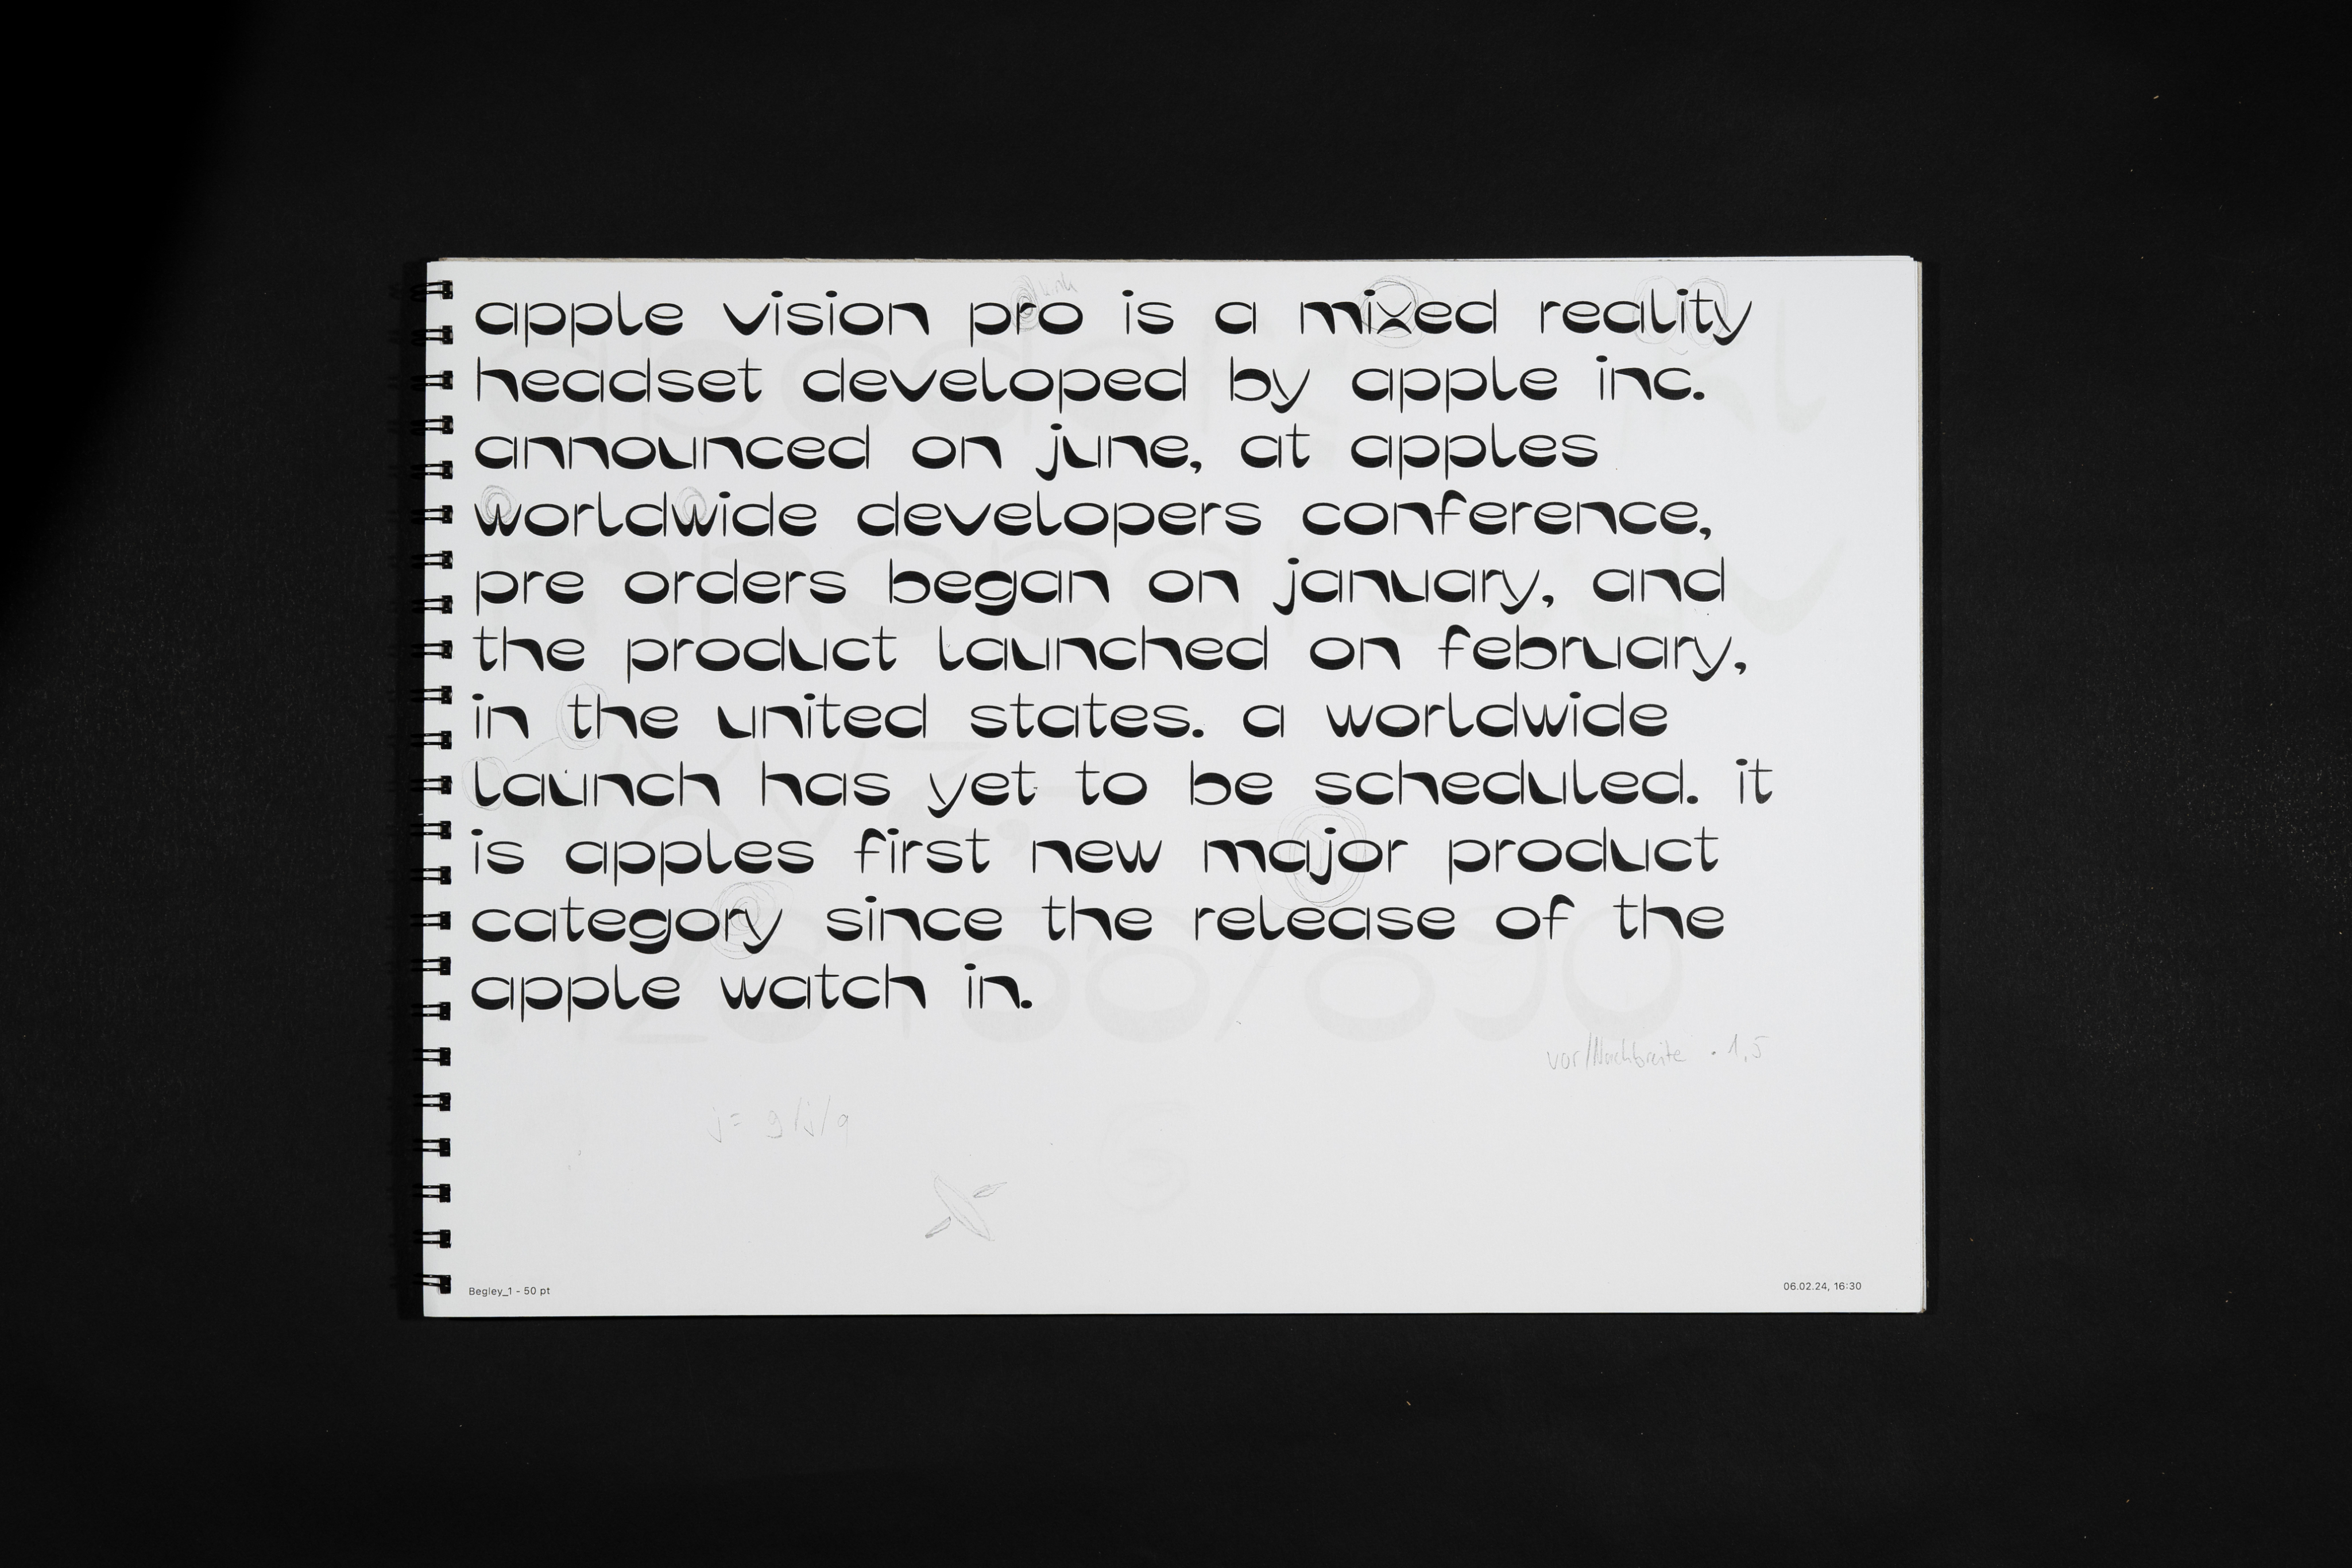 apple vision pro is a mixed reality
headset developed by apple inc.
announced on june, at apples
worldwide developers conference,
pre orders began on january, and
the product launched on february,
in the united states. a worldwide
launch has yet to be scheduled. it
is apples first new major product
category since the release of the
apple watch in.
vor/Nachbreite · 1,5
j = g/j/g
Begley_1 - 50 pt
06.02.24, 16:30